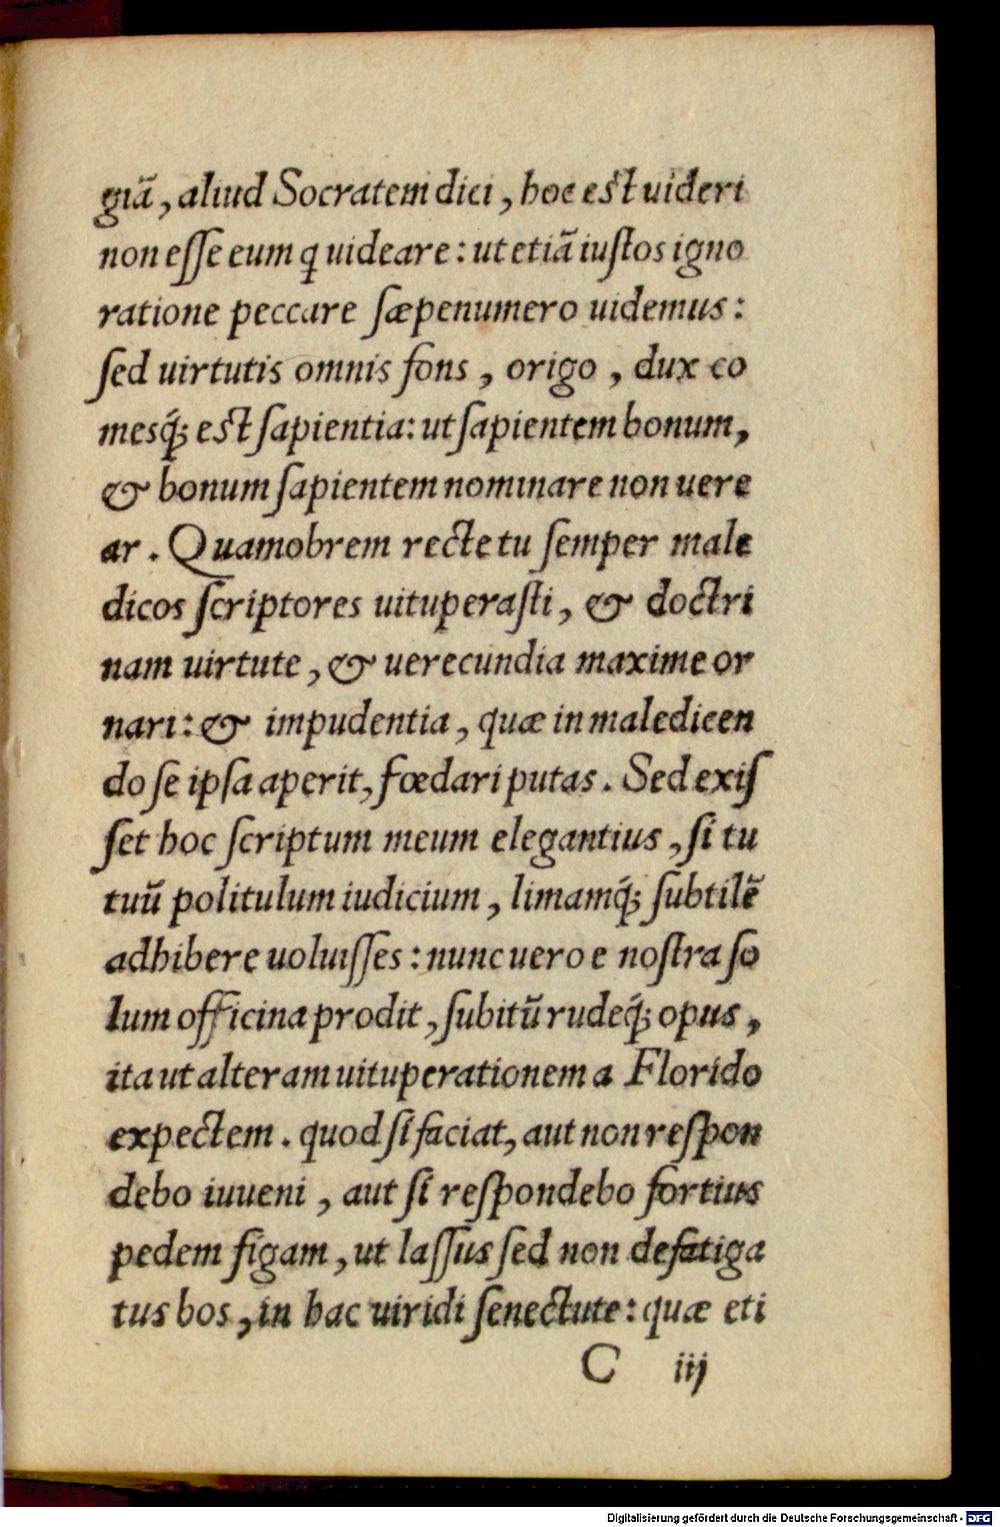 giã, aliud Socratem dici, hoc est uideri
non eſſe eum q uideare: ut etiã iuſtos igno
ratione peccare ſæpenumero uidemus:
ſed uirtutis omnis fons, origo, dux co
mesq́; est ſapientia: ut ſapientem bonum,
& bonum ſapientem nominare non uere
ar. Quamobrem recte tu ſemper male
dicos ſcriptores uituperaſti, & doctri
nam uirtute, & uerecundia maxime or
nari: & impudentia, quæ in maledicen
do ſe ipſa aperit, fœdari putas. Sed exiſ
ſet hoc ſcriptum meum elegantius, ſi tu
tuũ politulum iudicium, limamq́; ſubtilẽ
adhibere uoluiſſes: nunc uero e noſtra ſo
lum officina prodit, ſubitũ rudeq́; opus,
ita ut alteram uituperationem a Florido
expectem. quod ſi faciat, aut non reſpon
debo iuueni, aut ſi reſpondebo fortius
pedem figam, ut laſſus ſed non defatiga
tus bos, in hac uiridi ſenectute: quæ eti
C iij
Digitalisierung gefördert durch die Deutsche Forschungsgemeinschaft - DFG